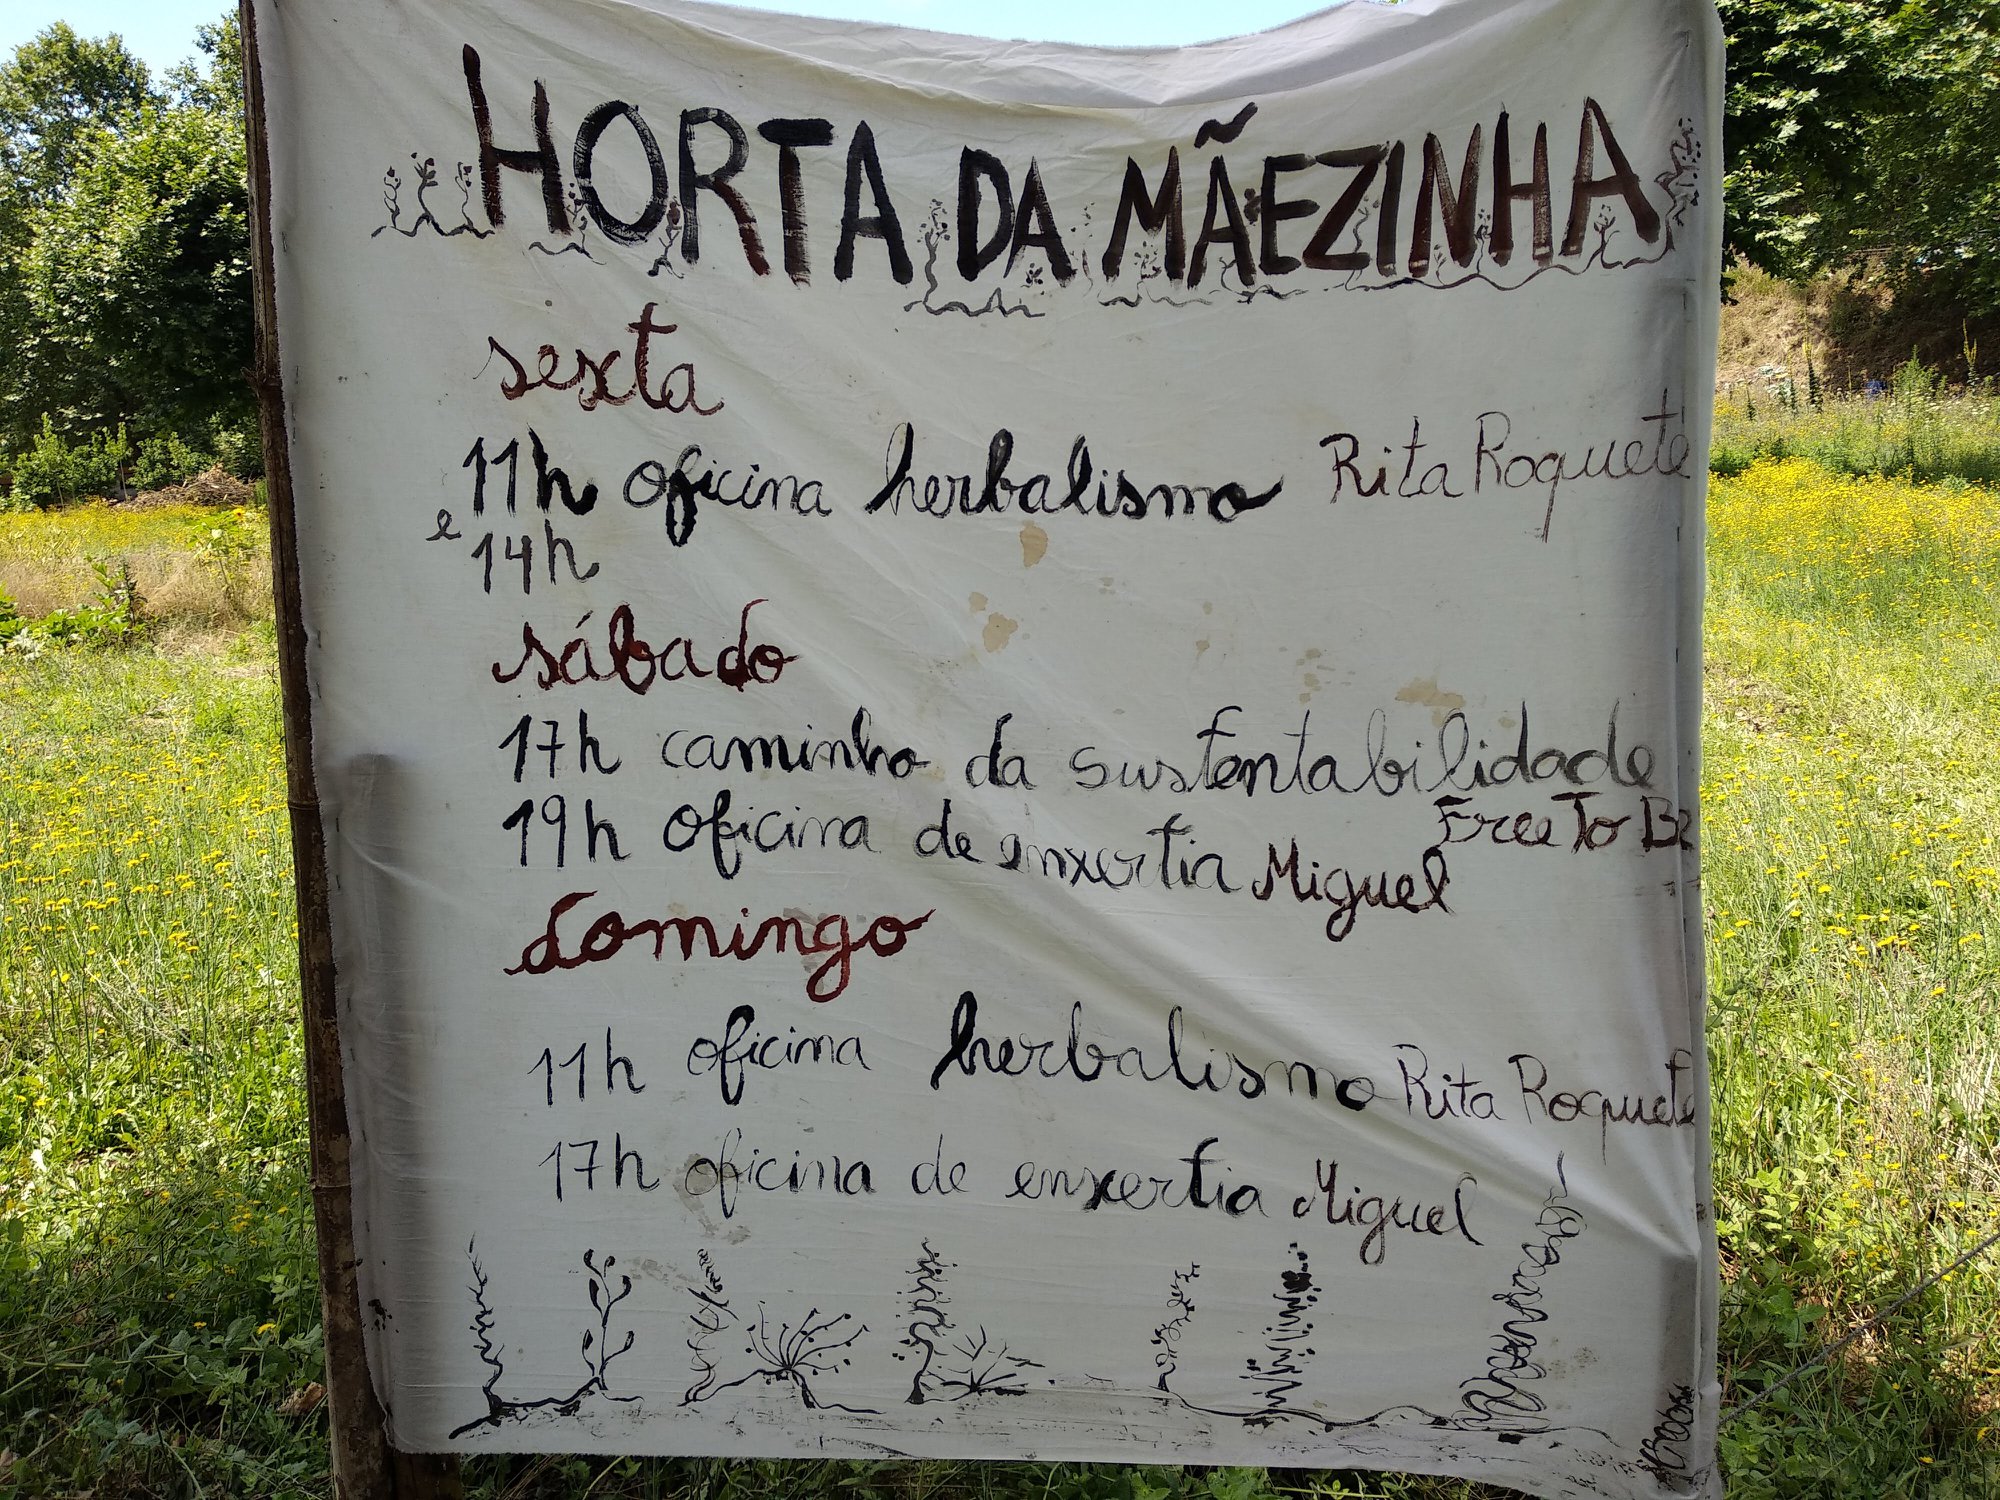 HORTA DA MÃEZINHA
sexta
11h oficina herbalismo Rita Roquete
e 14h
sábado
17h caminho da sustentabilidade
Free To Be
19h oficina de enxertia Miguel
domingo
11h oficina herbalismo Rita Roquete
17h oficina de enxertia Miguel